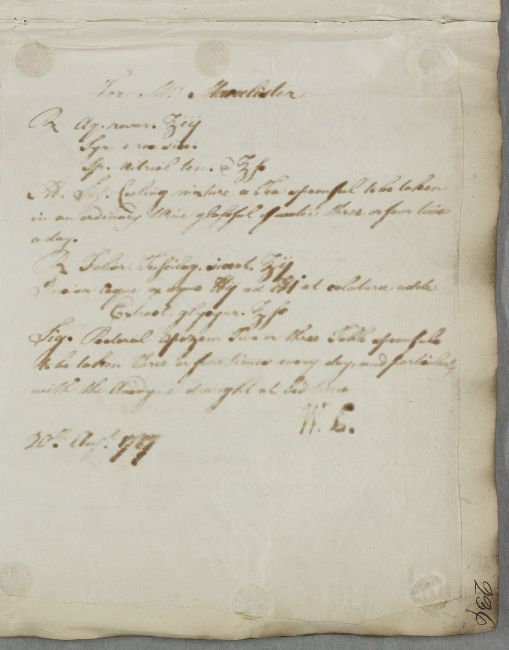 For Mrs Macalister
℞ Aq. rosar. ℥iij
Syr. e rosis
Sp. vitriol ten. a ℥ſs
M. Sig. Cooling mixture a Tea spoonful to be taken
in an ordinary Wine glassful of water three or four times
a day.
℞ Folior. Tussilag. ℥ij
aque ad et colature adde
Extract. glycyrr. ℥ſs
Sig. Pectoral apozem Two or three Table spoonfuls
to be taken three or four times every day, and particularly
with the Anodyne draught at bed time
W. C.
20th Augt. 1777
234